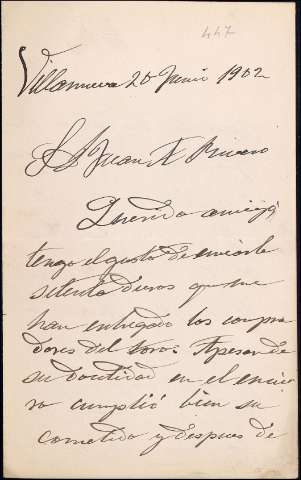 447
Villanueva 20 Junio 1902
Sr Dn Juan A Rivero
Querido amigo
tengo el gusto de enviarle
setenta duros que me
han entregado los compra
dores del toro: Apesar de
su docilidad en el encie
ro cumplió bien su
cometido y despues de